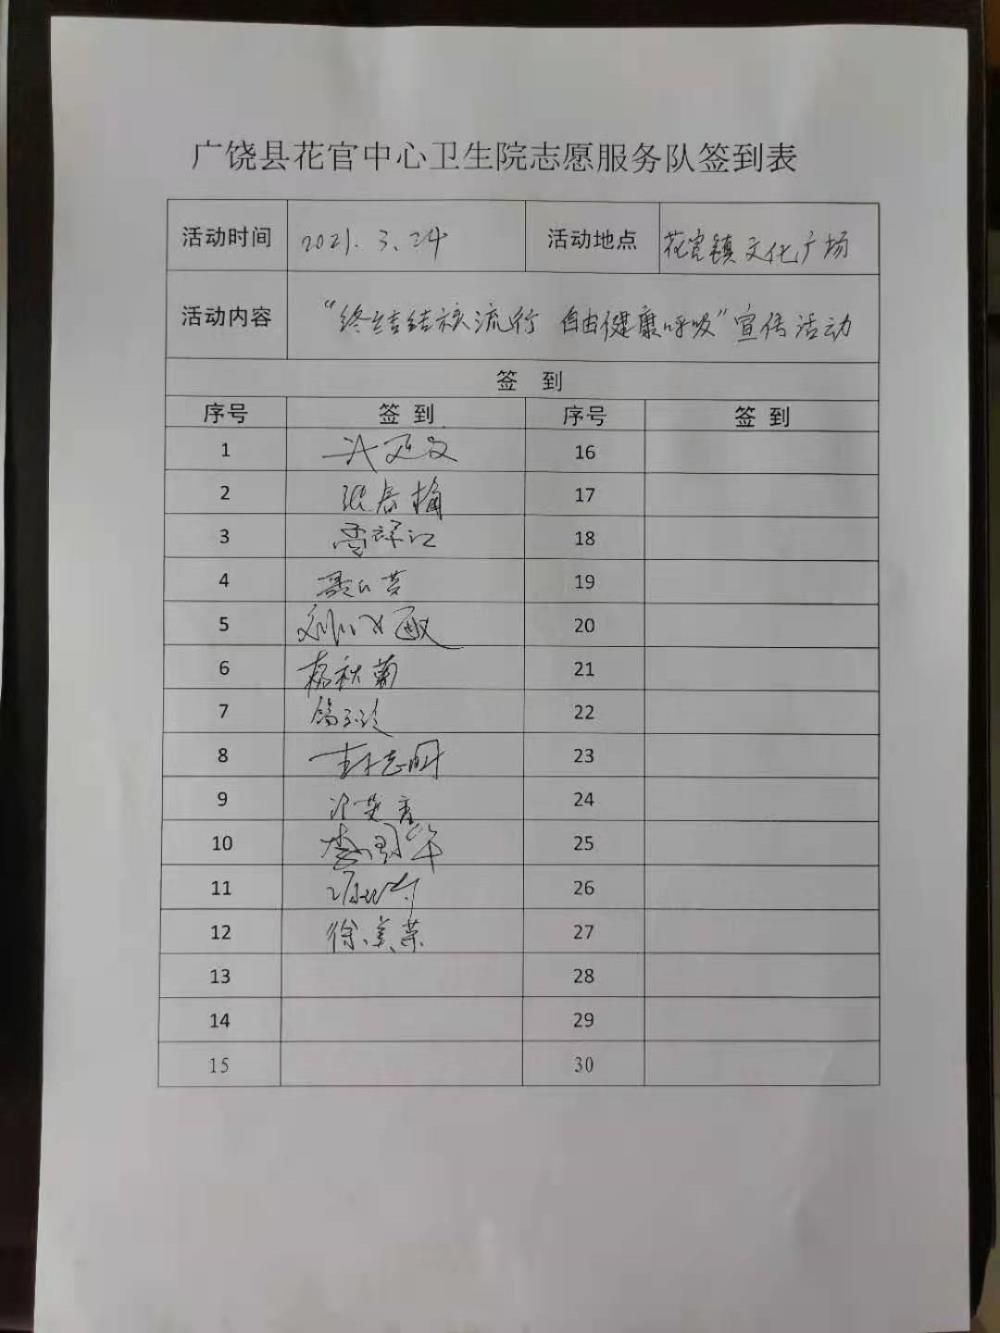 广饶县花官中心卫生院志愿服务队签到表
活动时间 2021.3.24 活动地点 花官镇文化广场
活动内容 “终结结核流行 自由健康呼吸”宣传活动
签 到
序号 签 到 序号 签 到
1 16
2 张春梅 17
3 18
4 19
5 20
6 杨秋菊 21
7 22
8 志明 23
9 24
10 25
11 26
12 徐美荣 27
13 28
14 29
15 30